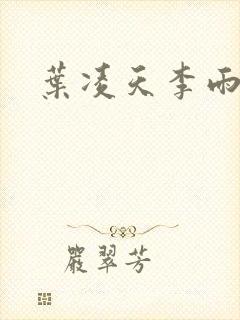 葉凌天李雨
嚴翠芳